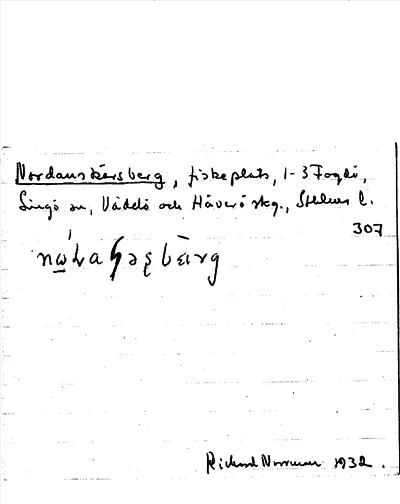 Nordanskärsberg, fiskeplats, 1-3 Fogdö,
Singö sn, Väddö och Häverö skg., Sthlms l.
307
Rickard Norrman 1932.